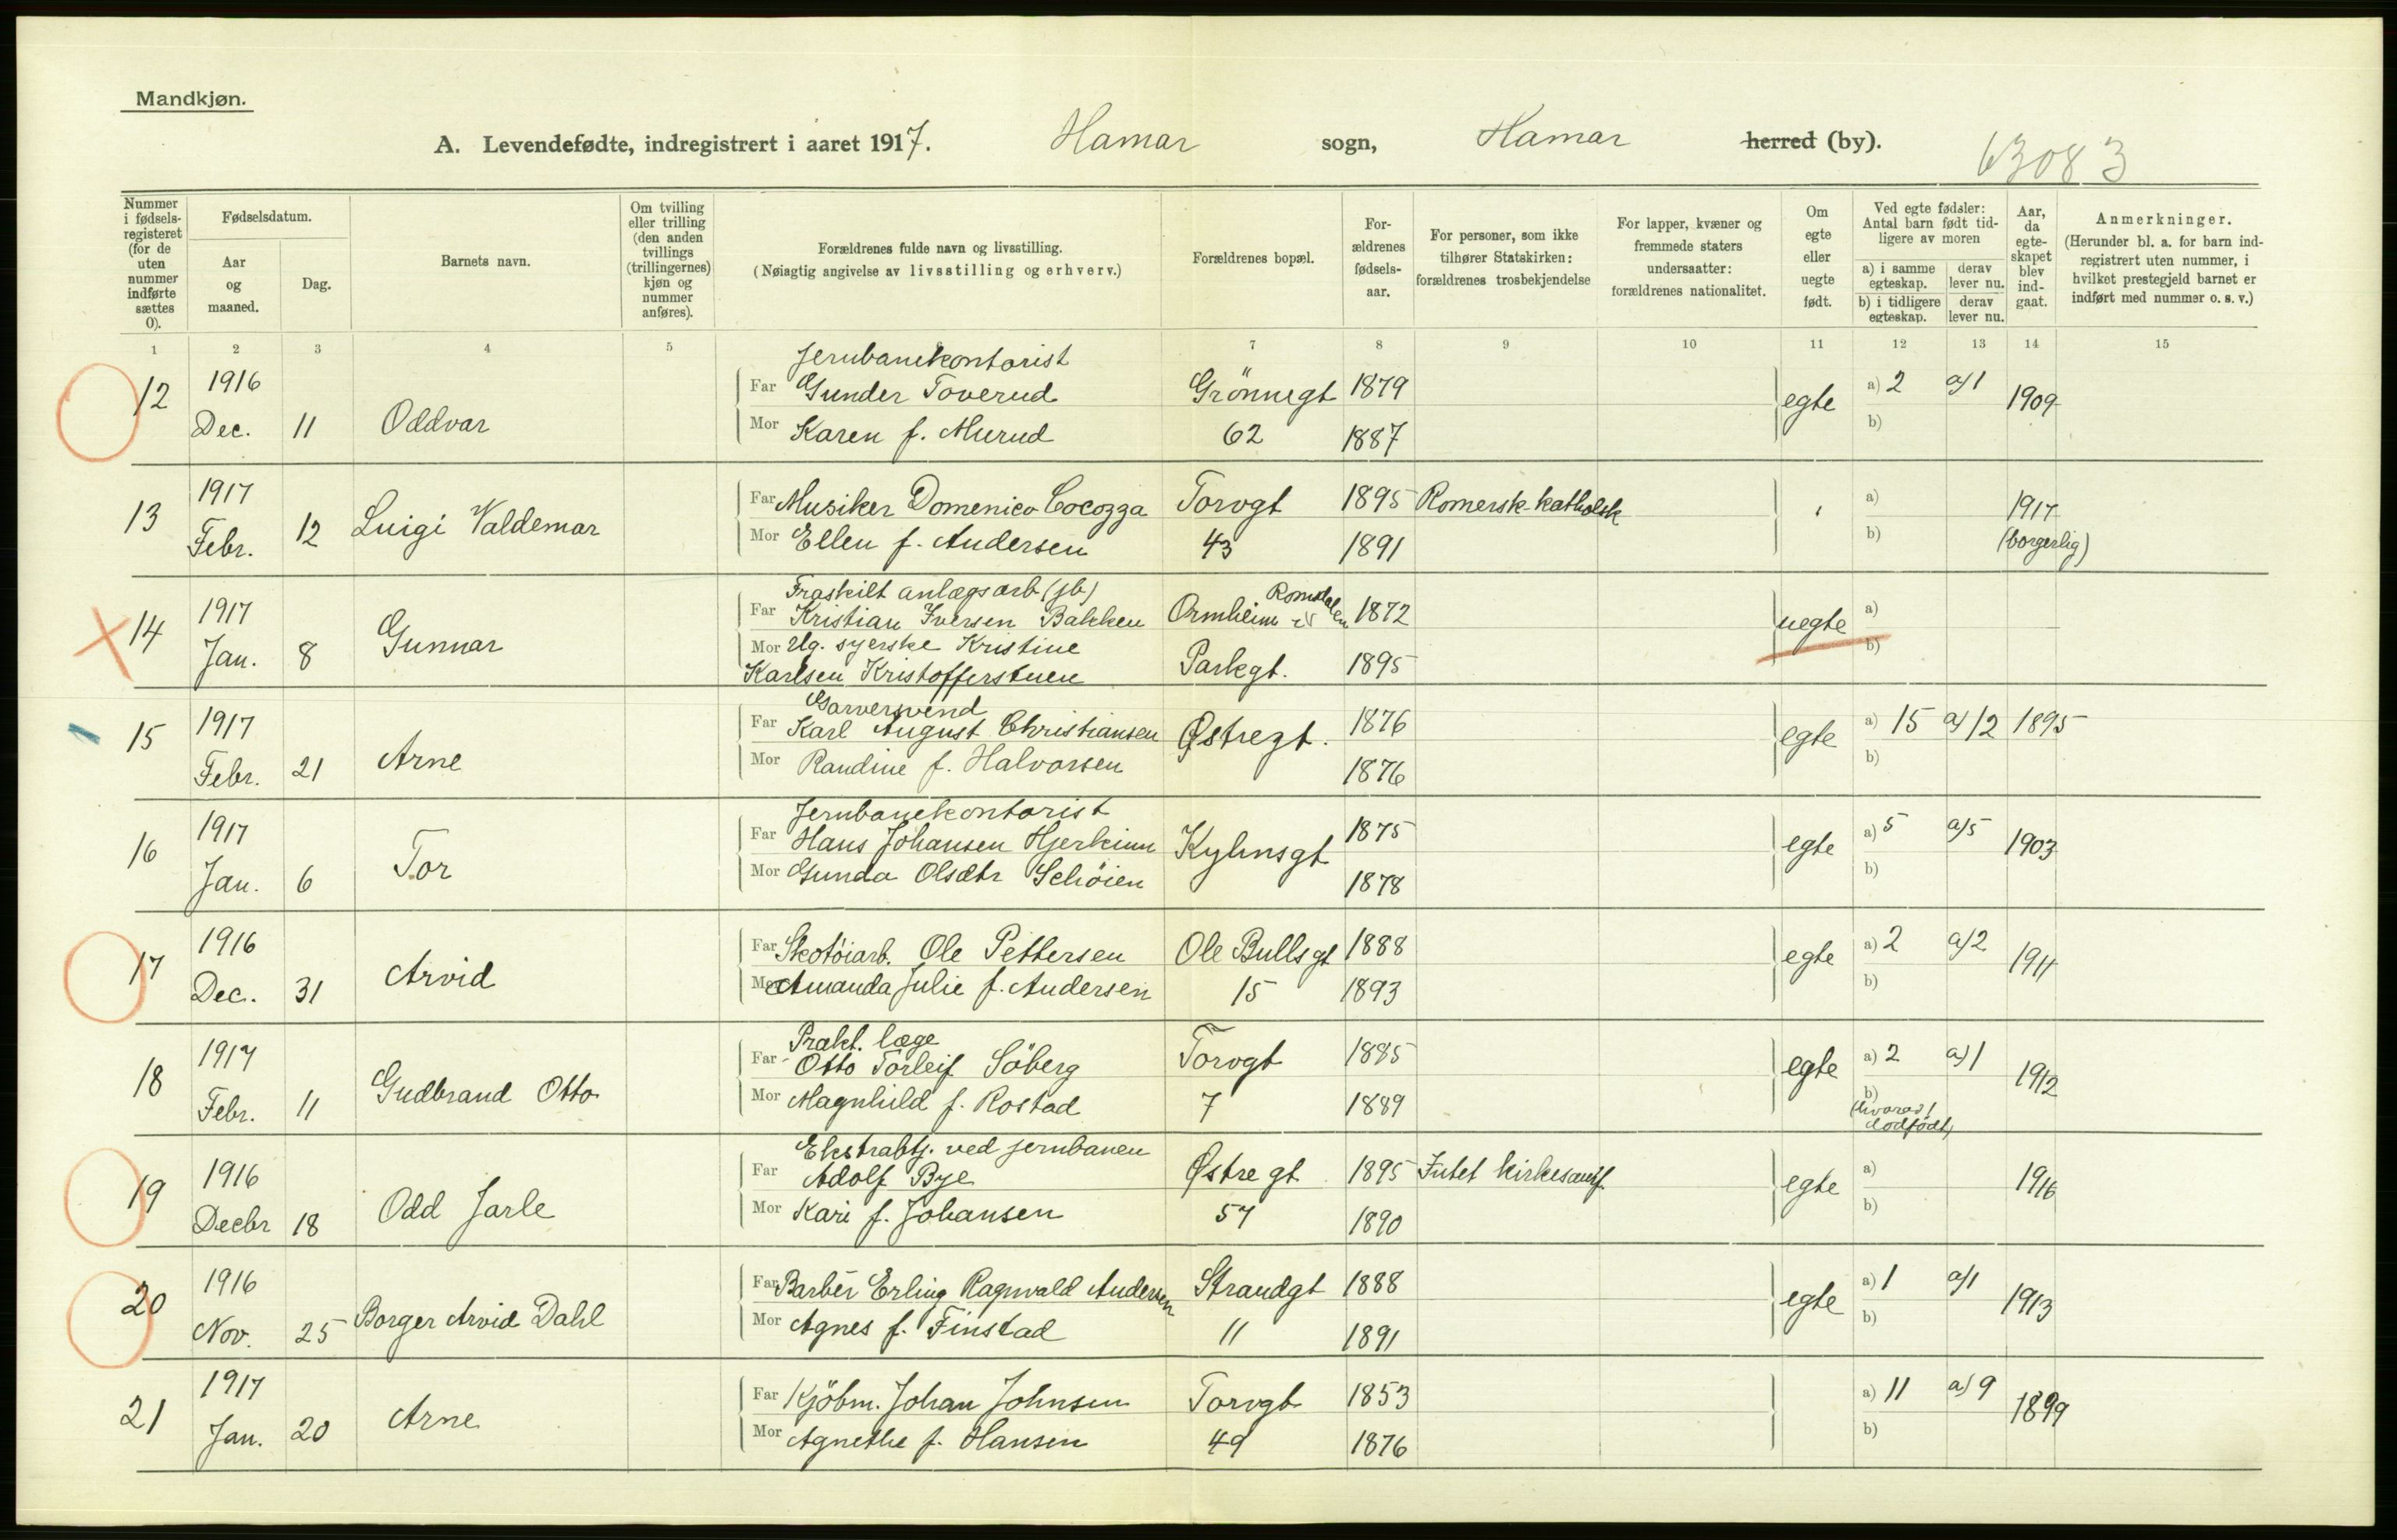 Mandkjøn.
A. Levendefødte, indregistrert i aaret 1917. Hamar sogn, Hamar herred (by). 63083
Nummer i fødsels-registeret (for de uten nummer indførte sættes 0).
Fødselsdatum.
Aar og maaned.
Dag.
Barnets navn.
Om tvilling eller trilling (den anden tvillings (trillingernes) kjøn og nummer anføres).
Forældrenes fulde navn og livsstilling.
(Nøiagtig angivelse av livsstilling og erhverv.)
Forældrenes bopæl.
For-ældrenes fødsels-aar.
For personer, som ikke tilhører Statskirken: forældrenes trosbekjendelse
For lapper, kvæner og fremmede staters undersaatter: forældrenes nationalitet.
Om egte eller uegte født.
Ved egte fødsler: Antal barn født tid-ligere av moren
a) i samme egteskap. derav lever nu.
b) i tidligere egteskap. derav lever nu.
Aar, da egte-skapet blev ind-gaat.
Anmerkninger.
(Herunder bl. a. for barn ind-registrert uten nummer, i hvilket prestegjeld barnet er indført med nummer o. s. v.)
1 2 3 4 5 7 8 9 10 11 12 13 14 15
Jernbanekontorist
12 1916 Far Gunder Toverud Grönnegt 1879 egte a) 2 a) 1 1909
Dec. 11 Oddvar Mor Karen f. Murud 62 1887 b)
13 1917 Luigi Valdemar Far Musiker Domenico Cocozza Torvgt 1895 Romersk-katholsk a) 1917
Febr. 12 Mor Ellen f. Andersen 43 1891 b) (borgerlig)
Fraskilt anlægsarb (jb)
14 1917 Gunnar Far Kristian Iversen Bakken Ormheim i Romsdalen 1872 uegte a)
Jan. 8 Mor Ug. syerske Kristine Parkgt. 1895 b)
Karlsen Kristofferstuen
Garversvend
15 1917 Arne Far Karl August Christiansen Østregt. 1876 egte a) 15 a) 12 1895
Febr. 21 Mor Randine f. Halvorsen 1876 b)
Jernbanekontorist
16 1917 Tor Far Hans Johansen Hjerkinn Kylnsgt 1875 egte a) 5 a) 5 1903
Jan. 6 Mor Gunda Olsdtr Schöien 1878 b)
17 1916 Arvid Far Skotöiarb. Ole Pettersen Ole Bullsgt 1888 egte a) 2 a) 2 1911
Dec. 31 Mor Amanda Julie f. Andersen 15 1893 b)
Prakt. læge
18 1917 Gudbrand Otto Far Otto Torleif Söberg Torvgt 1885 egte a) 2 a) 1 1912
Febr. 11 Mor Magnhild f. Rostad 7 1889 b)
(hvorav 1 dodfödt)
Ekstrabtj. ved jernbanen
19 1916 Odd Jarle Far Adolf Bye Østre gt 1895 Intet kirkesamf. egte a) 1916
Decbr 18 Mor Kari f. Johansen 57 1890 b)
20 1916 Borger Arvid Dahl Far Barber Erling Ragnvald Andersen Strandgt 1888 egte a) 1 a) 1 1913
Nov. 25 Mor Agnes f. Finstad 11 1891 b)
21 1917 Arne Far Kjöbm. Johan Johnsen Torvgt 1853 a) 11 a) 9 1899
Jan. 20 Mor Agnethe f. Hansen 49 1876 b)